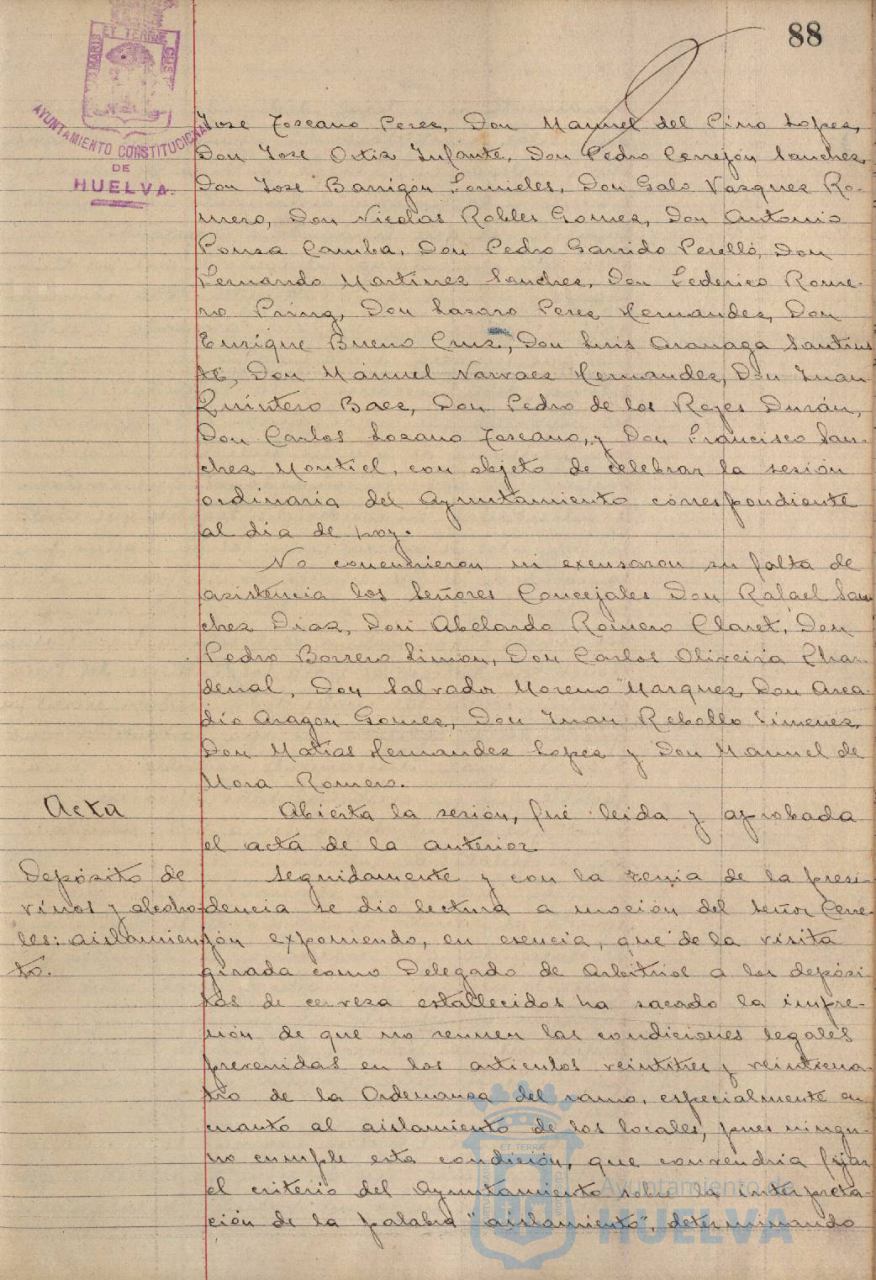 88
ET TERRAE
MARIS
CUST
AYUNTAMIENTO CONSTITUCIONAL
DE
HUELVA.
Jose Toscano Perez, Don Manuel del Pino Lopez,
Don Jose Ortiz Infante, Don Pedro Cerrejón Sanchez,
Don Jose Barrigón Fornieles, Don Galo Vazquez Ro-
mero, Don Nicolas Robles Gomez, Don Antonio
Ponza Camba, Don Pedro Garrido Perelló, Don
Fernando Martinez Sanchez, Don Federico Rome-
ro Pring, Don Lazaro Perez Hernandez, Don
Enrique Bueno Cruz, Don Luis Aranaga Santius
te, Don Manuel Narvaez Hernandez, Don Juan
Quintero Baez, Don Pedro de los Reyes Durán,
Don Carlos Lozano Toscano, y Don Francisco San-
chez Montiel, con objeto de celebrar la sesión
ordinaria del Ayuntamiento correspondiente
al dia de hoy.
No concurrieron ni excusaron su falta de
asistencia los Señores Concejales Don Rafael San
chez Diaz, Don Abelardo Romero Claret, Don
Pedro Borrero Limon, Don Carlos Oliveira Char-
denal, Don Salvador Moreno Marquez, Don Arca-
dio Aragon Gomez, Don Juan Rebollo Jimenez,
Don Matias Hernandez Lopez y Don Manuel de
Mora Romero.
Acta
Abierta la sesión, fué leida y aprobada
el acta de la anterior
Depósito de
vinos y alcoho-
les: aislamien
to.
Seguidamente y con la venia de la presi
dencia se dio lectura a moción del Señor Cerre-
jón exponiendo, en esencia, que de la visita
girada como Delegado de Arbitrios a los depósi-
tos de cerveza establecidos ha sacado la impre-
sión de que no reunen las condiciones legales
prevenidas en los articulos veintitres y veinticua-
tro de la Ordenanza del ramo, especialmente en
cuanto al aislamiento de los locales, pues ningu-
no cumple esta condición, que convendria fijar
el criterio del Ayuntamiento sobre la interpreta-
ción de la palabra "aislamiento", determinando
ET TERRAE
Ayuntamiento de
HUELVA